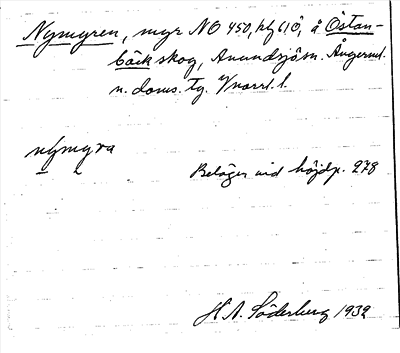 Nymyren, myr NO 450, hfg 610, å Östan-
bäck skog, Anundsjö sn. Ångerml.
n. doms. tg. V/norrl. l.
nymyra
Belägen vid höjdp. 278
H. A. Söderberg 1932